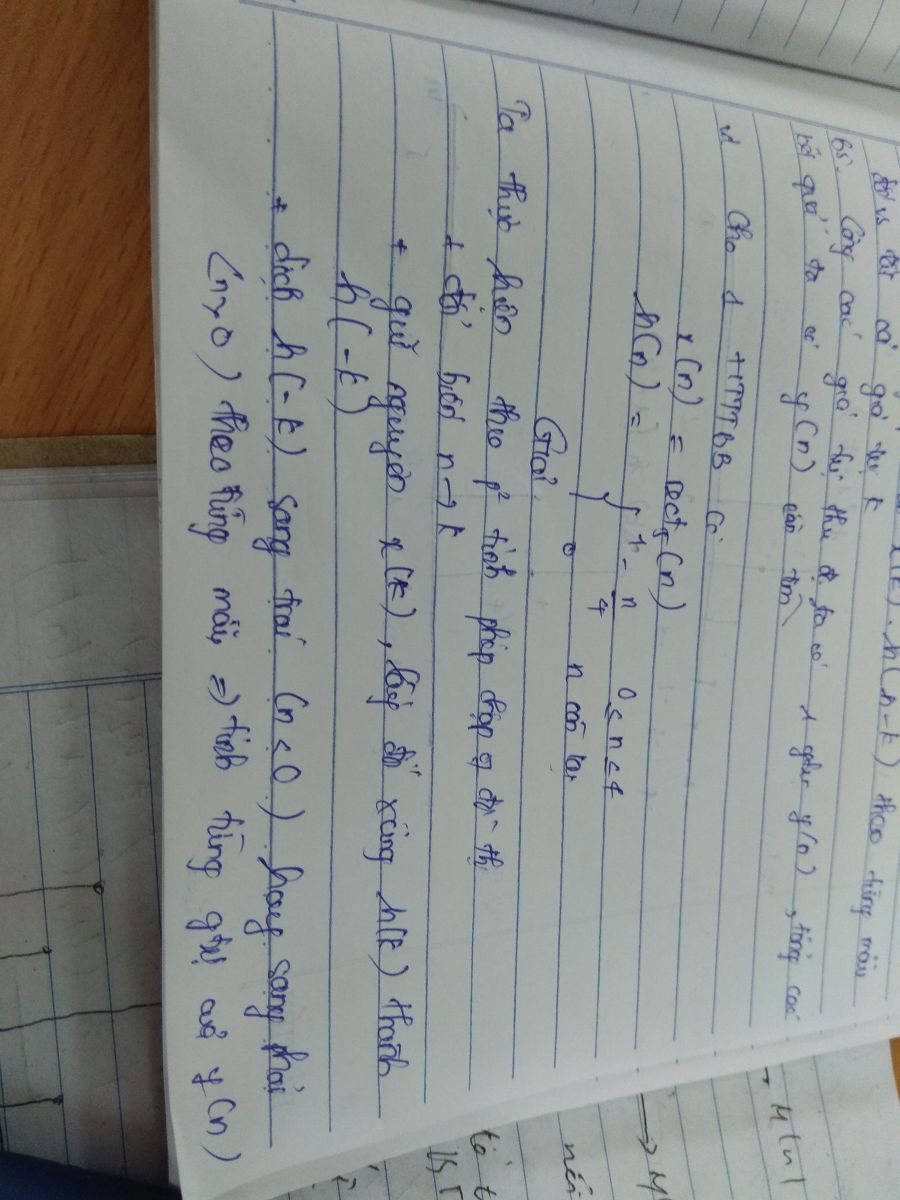 x(k). h(n-k) theo từng mẫu
đối vs tất cả giá trị k
B5. Cộng các giá trị thu đc ta có 1 gtrị y(n), tổng các
kết quả ta có y(n) cần tìm
vd Cho 1 HTTTBB có
x(n) = rect5(n)
h(n) = { 1 - n/4 0 ≤ n ≤ 4
0 n còn lại
Giải
Ta thực hiện theo p² tính phép chập = đồ thị
+ đổi biến n → k
+ giữ nguyên x(k), lấy đối xứng h(k) thành
h(-k)
+ dịch h(-k) sang trái (n<0) hay sang phải
(n>0) theo từng mẫu => tính từng gtrị của y(n)
→ H(n)
nếu